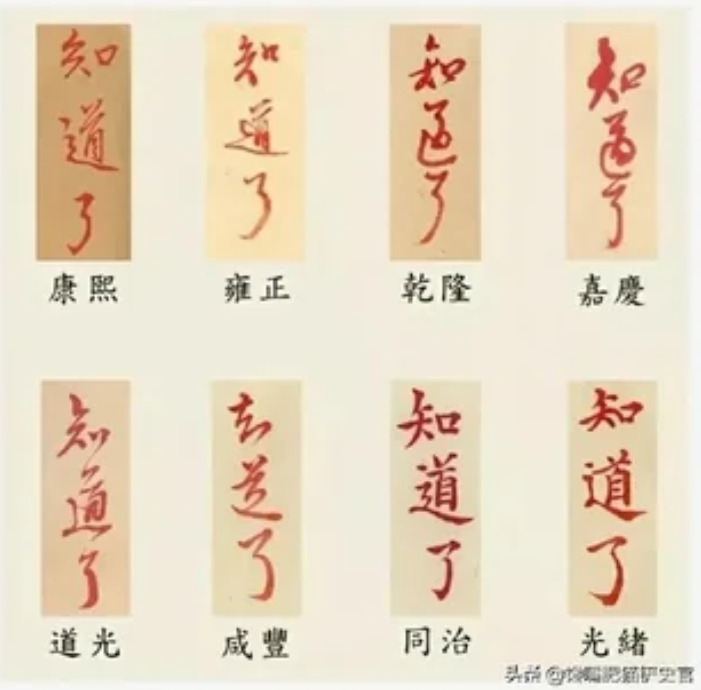 知道了 知道了 知道了 知道了
康熙 雍正 乾隆 嘉慶
知道了 知道了 知道了 知道了
道光 咸豐 同治 光緒
头条